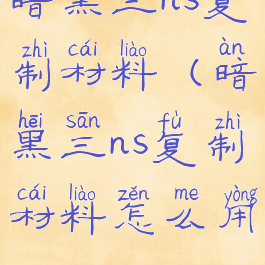 暗黑三ns复
zhì cái liào àn
制材料(暗
hēi sān fù zhì
黑三ns复制
cái liào zěn me yòng
材料怎么用